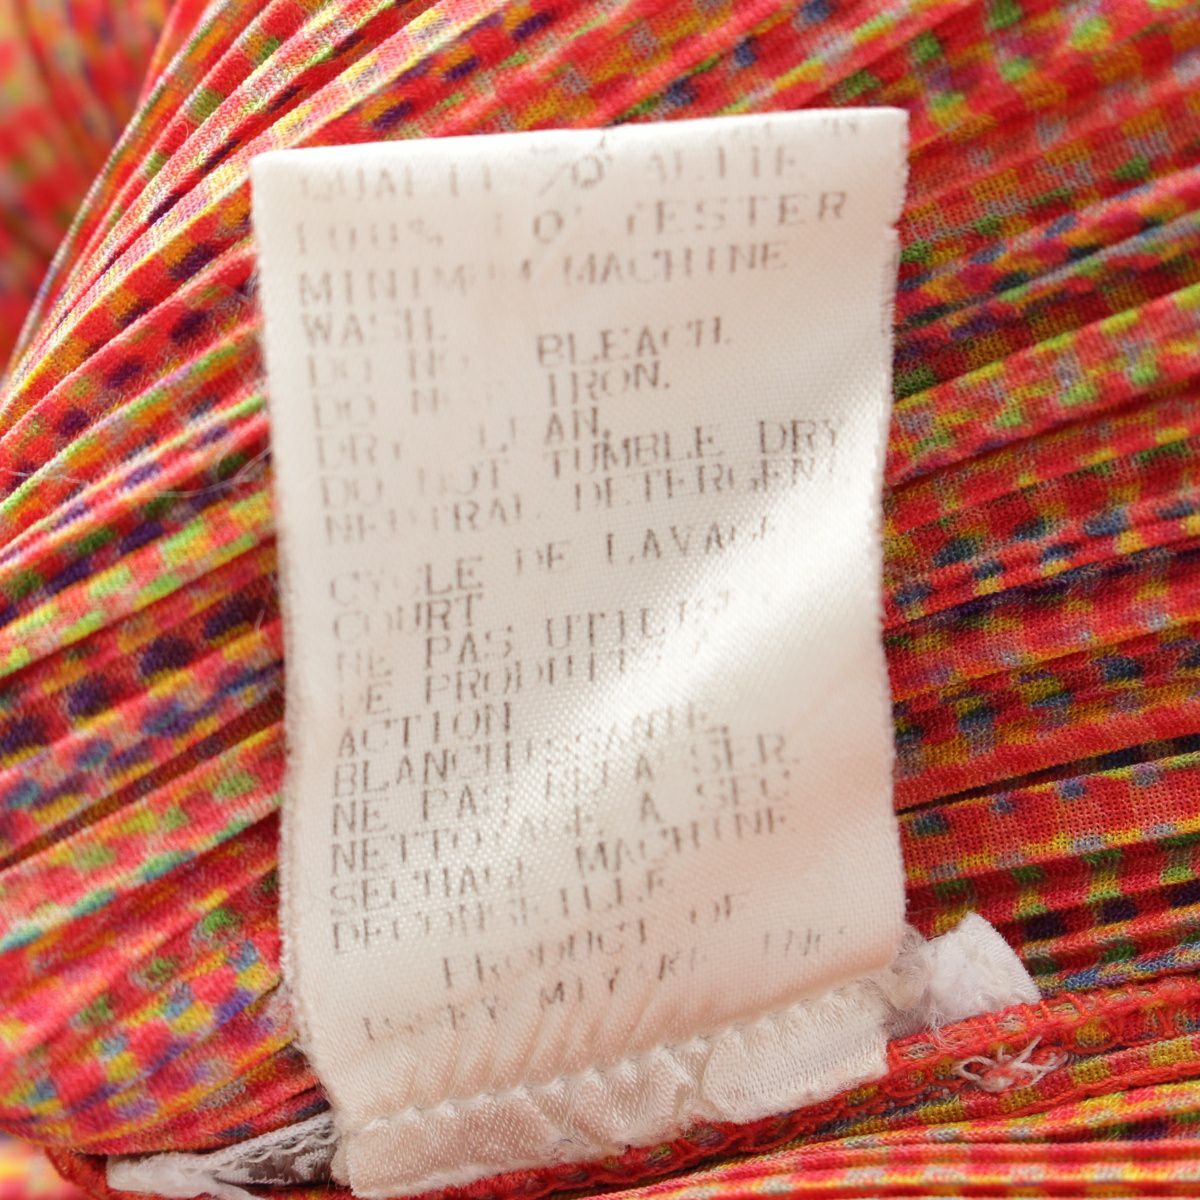 QUALITY/QUALITE
100% POLYESTER
MINIMUM MACHINE
WASH.
DO NOT BLEACH.
DO NOT IRON.
DRY CLEAN.
DO NOT TUMBLE DRY
NEUTRAL DETERGENT
CYCLE DE LAVAGE
COURT
NE PAS UTILISER
DE PRODUITS A
ACTION
BLANCHISSANTE.
NE PAS REPASSER.
NETTOYAGE A SEC
SECHAGE MACHINE
DECONSEILLE
PRODUCT OF
ISSEY MIYAKE INC.